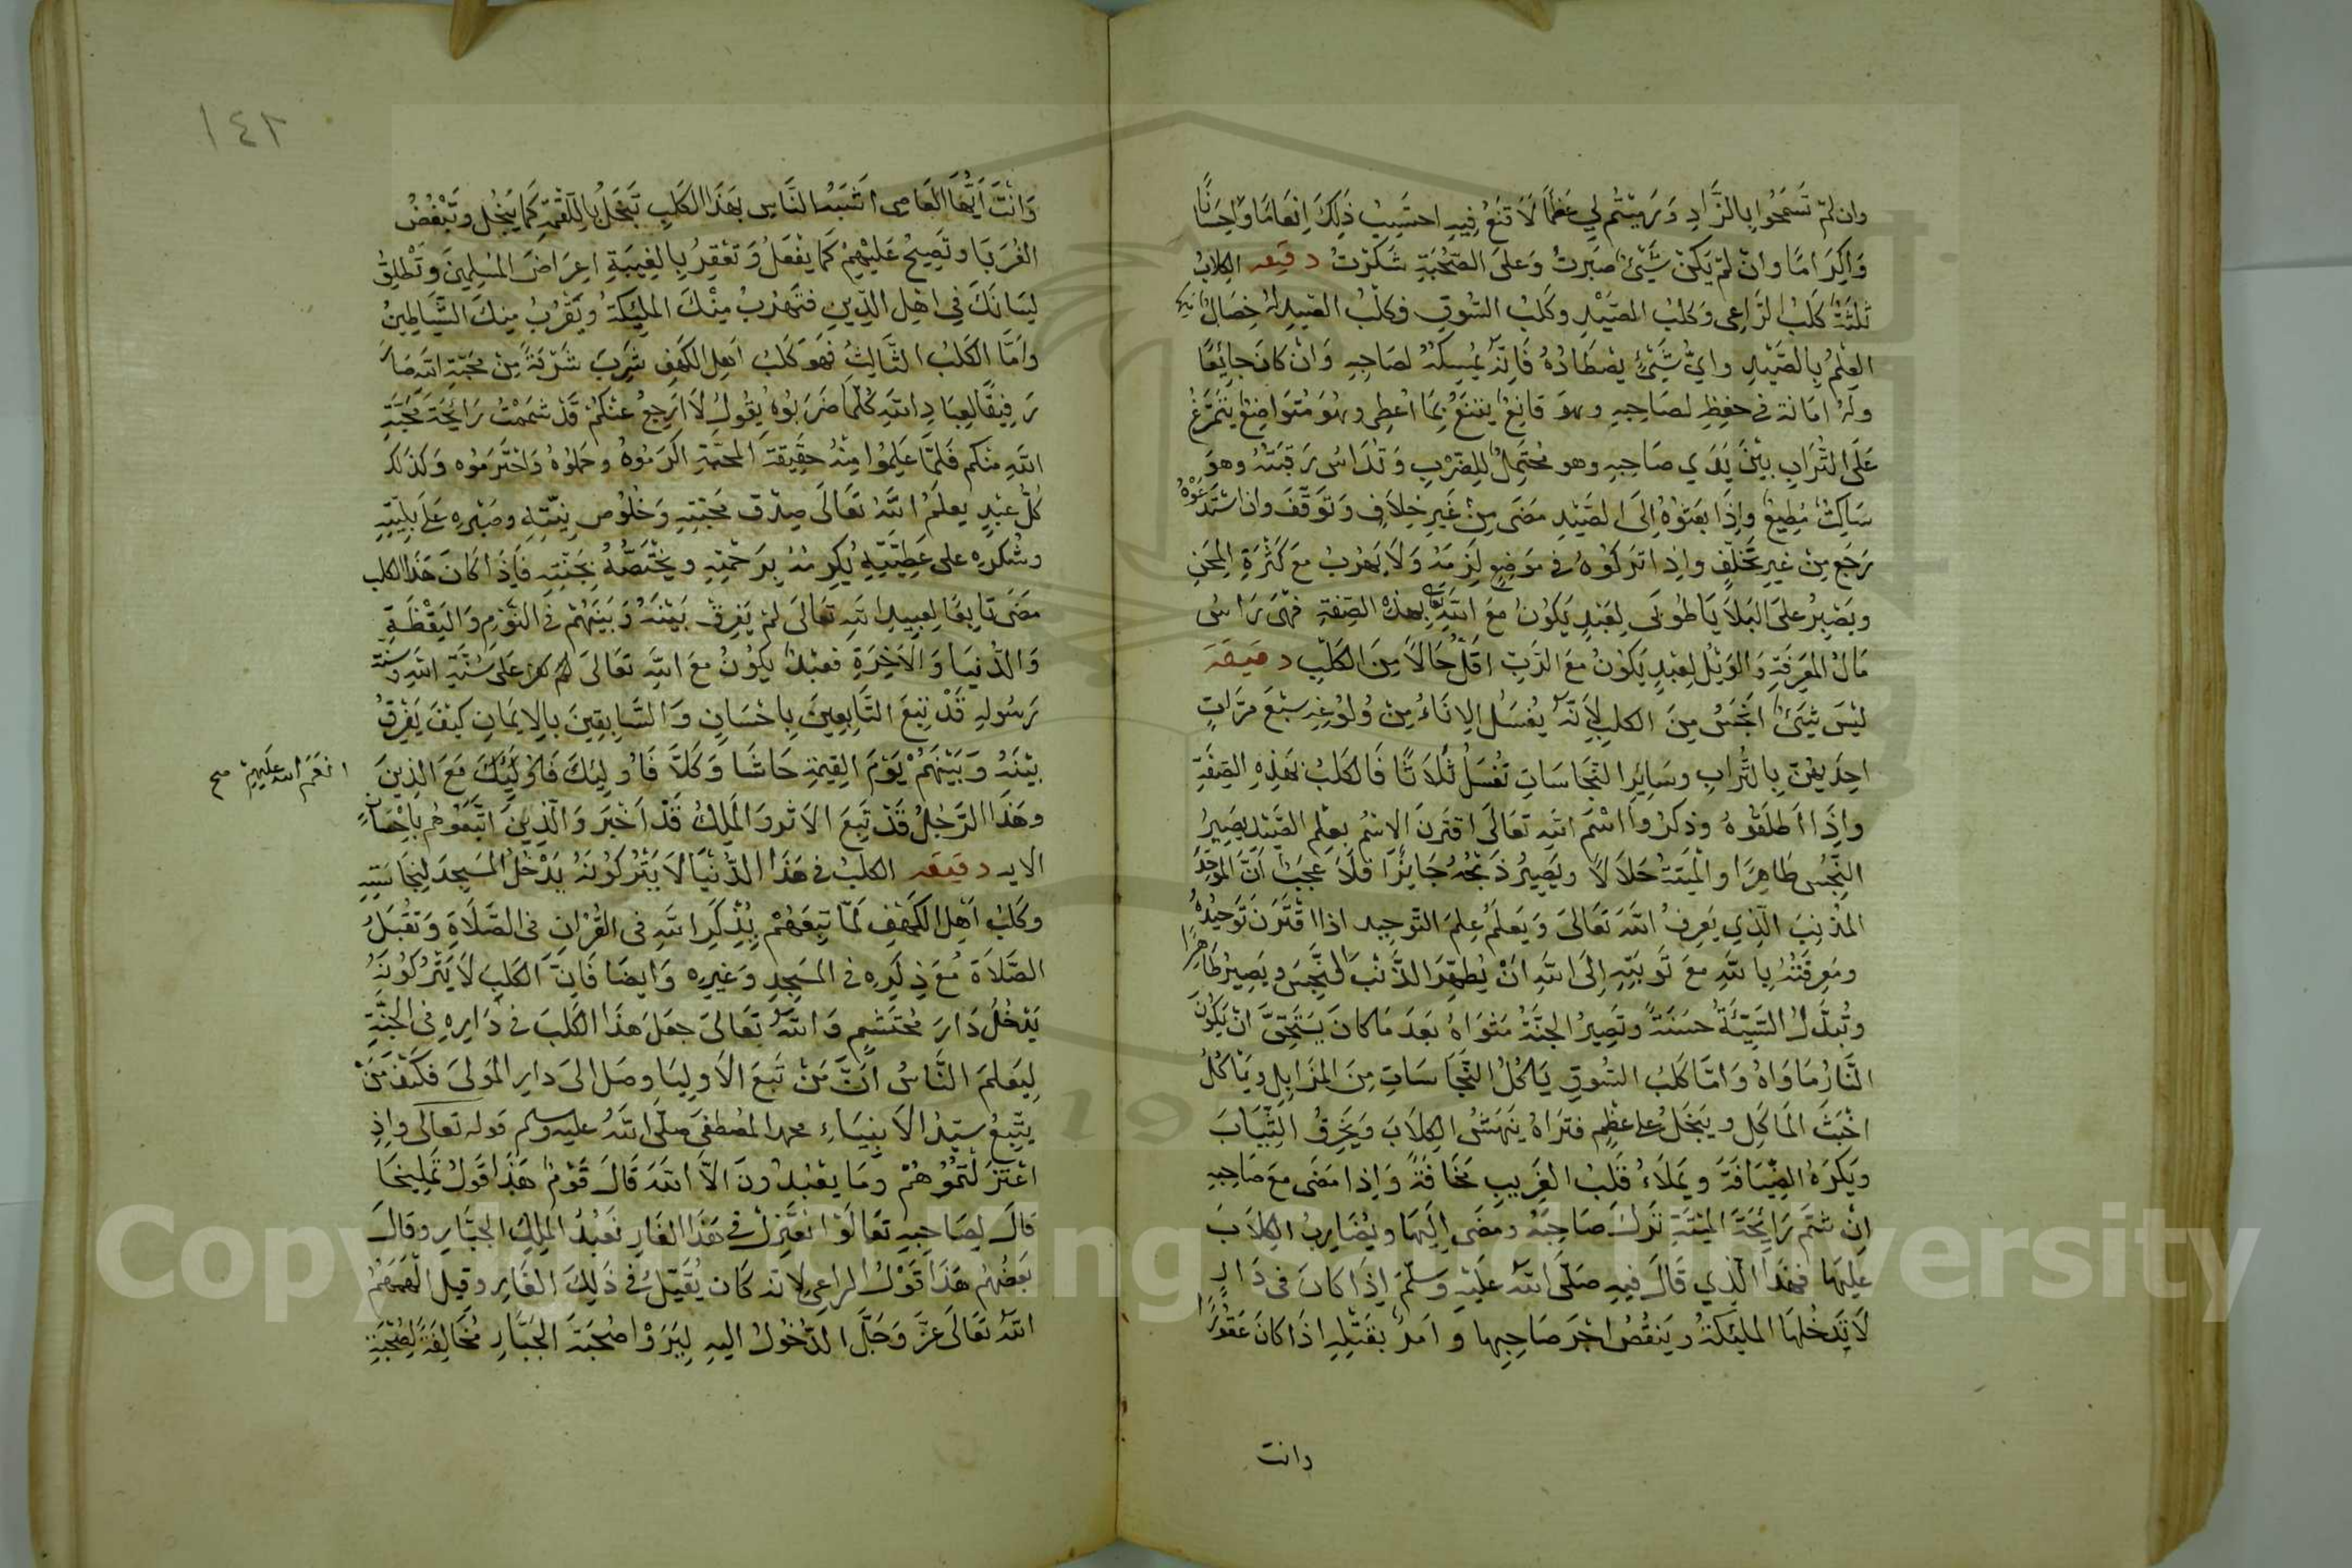 وان لم تسمحوا بالزاد ورميتم لي عظما لا تنع فيه احتسب ذلك انعاما واحسانا
واكراما وان لم يكن شيئ صبرت وعلى الصحبة شكرت دقيقه الكلاب
ثلثة كلب الراعى وكلب الصيد وكلب السوق وكلب الصيد له خصال
العلم بالصيد واي شيئ يصطاده فانه يمسكه لصاحبه وان كان جائعا
وله امانة في حفظ لصاحبه وهو قانع يقنع بما اعطى وهو متواضع يتمرغ
على التراب بين يدي صاحبه وهو محتمل للضرب وتداس رقبته وهو
ساكت مطيع واذا بعثوه الى الصيد مضى من غير خلاف وتوقف وان استدعوه
رجع من غير تخلف واذا تركوه في موضع لزمه ولا يهرب مع كثرة المحن
ويصبر على البلا يا طوبى لعبد يكون مع الله تعالى بهذه الصفة فهى راس
مال المعرفة والويل لعبد يكون مع الرب اقل حالا من الكلب دقيقة
ليس شيئ انجس من الكلب لانه يغسل الاناء من ولوغه سبع مرات
احديهن بالتراب وسائر النجاسات تغسل ثلاثا فالكلب بهذه الصفة
واذا اطلقوه وذكروا اسم الله تعالى اقترن الاسم بعلم الصيد يصير
النجس طاهرا والميتة حلالا ويصير ذبحه جائزا فلا عجب ان الموحد
المذنب الذي يعرف الله تعالى ويعلم علم التوحيد اذا اقترن توحيده
ومعرفته بالله مع توبته الى الله ان يطهر الذنب النجس ويصير طاهرا
وتبدل السيئة حسنة وتصير الجنة مثواه بعد ما كان يستحق ان يكون
النار ماواه واما كلب السوق ياكل النجاسات من المزابل وياكل
اخبث الماكل ويبخل على عظم فتراه ينهش الكلاب ويخرق الثياب
ويكره الضيافة ويملاء قلب الغريب مخافة واذا مضى مع صاحبه
ان شم رائحة الميتة ترك صاحبه ومضى اليها ويضارب الكلاب
عليها فهذا الذي قال فيه صلى الله عليه وسلم اذا كان في دار
لا تدخلها المليكة وينقص اجر صاحبها وامر بقتله اذا كان عقورا
وانت
١٤٢
وانت ايها العاصى اشبه الناس بهذا الكلب تبخل باللقمة كما يبخل وتبغض
الغربا وتصيح عليهم كما يفعل وتعقر بالغيبة اعراض المسلمين وتطلق
لسانك في اهل الدين فتهرب منك المليكة ويقرب منك الشياطين
واما الكلب الثالث فهو كلب اهل الكهف شرب شربة من محبة الله صار
رفيقا لعباد الله كلما ضربوه يقول لا ارجع عنكم قد شممت رائحة محبة
الله منكم فلما علموا منه حقيقة المحبة اكرموه وحملوه واحترموه وكذلك
كل عبد يعلم الله تعالى صدق محبته وخلوص نيته وصبره على بليته
وشكره على عطيته يكرمه برحمته ويختصه بجنته فاذا كان هذا الكلب
مضى تابعا لعبيد الله تعالى لم يفرق بينه وبينهم في النوم واليقظة
والدنيا والاخرة فعبد يكون مع الله تعالى على سنة الله وسنة
رسوله قد تبع التابعين باحسان والسابقين بالايمان كيف يفرق
بينه وبينهم يوم القيمة حاشا وكلا فاوليك فاوليك مع الذين
انعم الله عليهم صح
وهذا الرجل قد تبع الاثر والملك قد اخبر والذين اتبعوهم باحسان
الايه دقيقه الكلب في هذا الدنيا لا يتركونه يدخل المسجد لنجاسته
وكلب اهل الكهف لما تبعهم بذكر الله في القران في الصلاة وتقبل
الصلاة مع ذكره في المسجد وغيره وايضا فان الكلب لا يتركونه
يدخل دار محتشم والله تعالى جعل هذا الكلب في داره في الجنة
ليعلم الناس ان من تبع الاوليا وصل الى دار المولى فكيف من
يتبع سيد الانبياء محمد المصطفى صلى الله عليه وسلم قوله تعالى واذ
اعتزلتموهم وما يعبدون الا الله قال قوم هذا قول تمليخا
قال لصاحبه تعالوا نعتزل في هذا الغار نعبد الملك الجبار وقال
بعضهم هذا قول الراعى لانه كان يقيل في ذلك الغار وقيل الهمهم
الله تعالى عز وجل الدخول اليه ليروا صحبة الجبار مخالفة لصحبة
Copyright © King Saud University